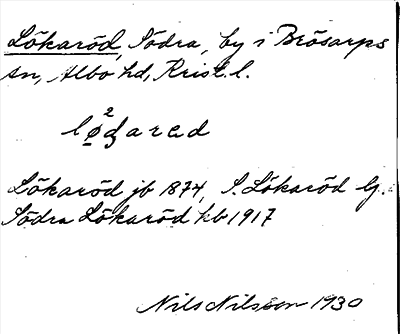 Lökaröd, Södra, by i Brösarps
sn, Albo hd, Krist. l.
lø²ʒared
Lökaröd jb 1874, S. Lökaröd Gf.
Södra Lökaröd kb 1917
Nils Nilsson 1930